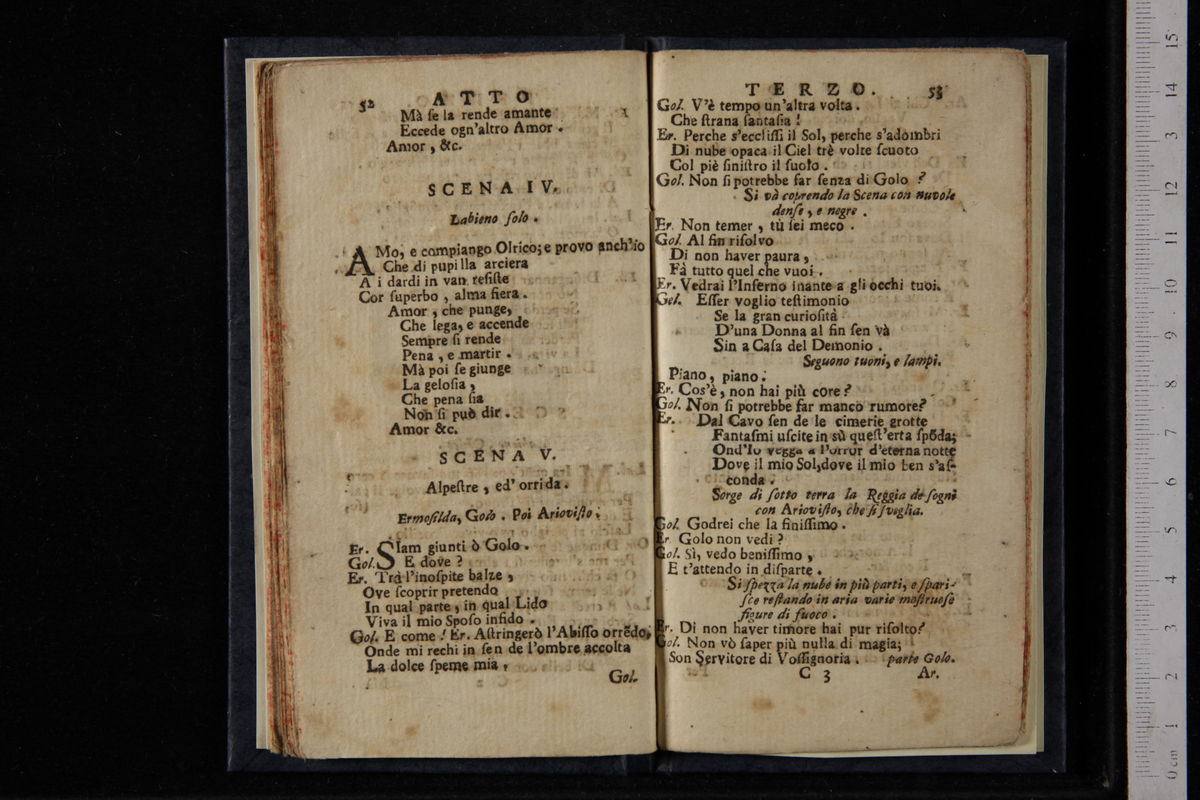 52 ATTO
Mà ſe la rende amante
Eccede ogn'altro Amor.
Amor, &c.
SCENA IV.
Labieno ſolo.
AMo, e compiango Olrico; e provo anch'io
Che di pupilla arciera
A i dardi in van reſiſte
Cor ſuperbo, alma fiera.
Amor, che punge,
Che lega, e accende
Sempre ſi rende
Pena, e martir.
Mà poi ſe giunge
La geloſia,
Che pena ſia
Non ſi può dir.
Amor &c.
SCENA V.
Alpeſtre, ed' orrida.
Ermoſilda, Golo. Poi Arioviſto.
Er. SIam giunti ò Golo.
Gol. E dove?
Er. Trà l'inoſpite balze,
Ove ſcoprir pretendo
In qual parte, in qual Lido
Viva il mio Spoſo infido.
Gol. E come! Er. Aſtringerò l'Abiſſo orrẽdo,
Onde mi rechi in ſen de l'ombre accolta
La dolce ſpeme mia.
Gol.
TERZO. 53
Gol. V'è tempo un'altra volta.
Che ſtrana fantaſia!
Er. Perche s'eccliſſi il Sol, perche s'adombri
Di nube opaca il Ciel trè volte ſcuoto
Col piè ſiniſtro il ſuolo.
Gol. Non ſi potrebbe far ſenza di Golo?
Si và coprendo la Scena con nuvole
denſe, e negre.
Er. Non temer, tù ſei meco.
Gol. Al fin riſolvo
Di non haver paura,
Fà tutto quel che vuoi.
Er. Vedrai l'Inferno inante a gli occhi tuoi.
Gol. Eſſer voglio teſtimonio
Se la gran curioſità
D'una Donna al fin ſen và
Sin a Caſa del Demonio.
Seguono tuoni, e lampi.
Piano, piano.
Er. Cos'è, non hai più core?
Gol. Non ſi potrebbe far manco rumore?
Er. Dal Cavo ſen de le cimerie grotte
Fantaſmi uſcite in sù queſt'erta ſpõda;
Ond'Io vegga a l'orror d'eterna notte
Dove il mio Sol, dove il mio ben s'aſ-
conda.
Sorge di ſotto terra la Reggia de ſogni
con Arioviſto, che ſi ſveglia.
Gol. Godrei che la finiſſimo.
Er. Golo non vedi?
Gol. Sì, vedo beniſſimo,
E t'attendo in diſparte.
Si ſpezza la nube in più parti, e ſpari-
ſce reſtando in aria varie moſtruoſe
figure di fuoco.
Er. Di non haver timore hai pur riſolto?
Gol. Non vò ſaper più nulla di magia;
Son Servitore di Voſſignoria. parte Golo.
C 3 Ar.
15
14
13
12
11
10
9
8
7
6
5
4
3
2
1
0 cm